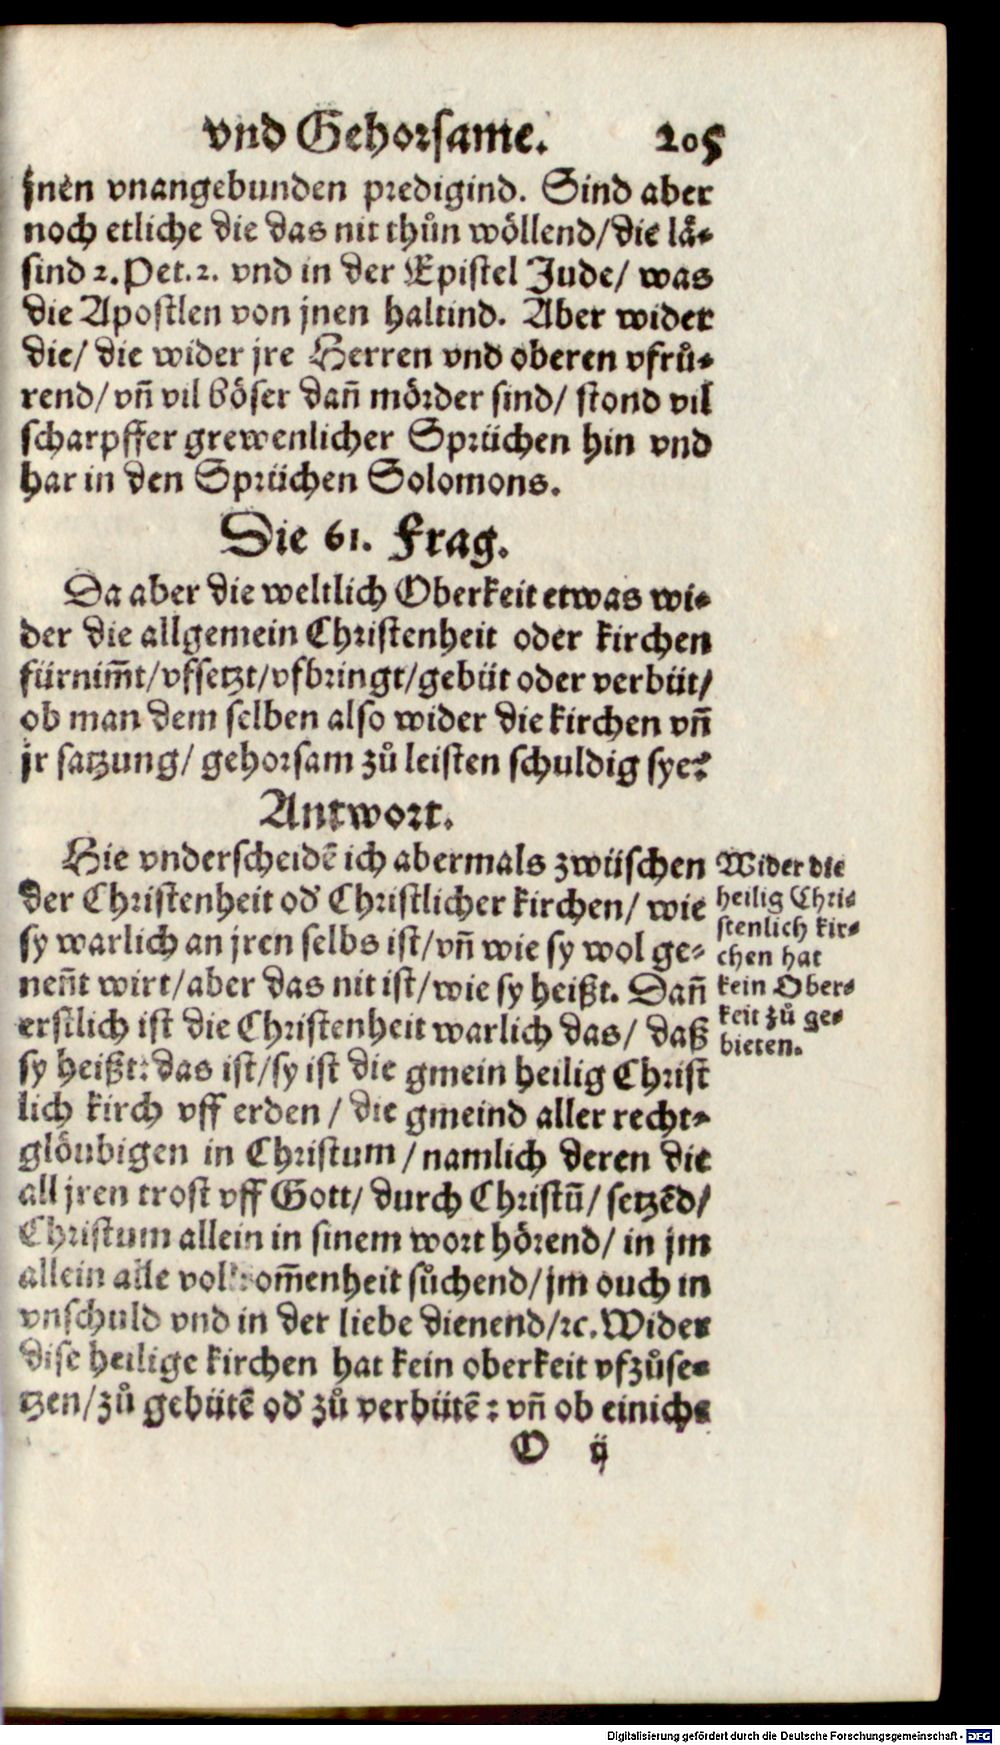 vnd Gehorsame. 205
jnen vnangebunden predigind. Sind aber
noch etliche die das nit thůn wöllend/die lä-
sind 2. Pet. 2. vnd in der Epistel Jude/ was
die Apostlen von jnen haltind. Aber wider
die/ die wider jre Herren vnd oberen vfrů-
rend/ vn̄ vil böser dan̄ mörder sind/ stond vil
scharpffer grewenlicher Sprüchen hin vnd
har in den Sprüchen Solomons.
Die 61. Frag.
Da aber die weltlich Oberkeit etwas wi-
der die allgemein Christenheit oder kirchen
fürnim̄t/vfsetzt/vfbringt/gebüt oder verbüt/
ob man dem selben also wider die kirchen vn̄
jr satzung/ gehorsam zů leisten schuldig sye?
Antwort.
Hie vnderscheidē ich abermals zwüschen
der Christenheit od' Christlicher kirchen/ wie
sy warlich an jren selbs ist/vn̄ wie sy wol ge-
nen̄t wirt/aber das nit ist/wie sy heißt. Dan̄
erstlich ist die Christenheit warlich das/ daß
sy heißt: das ist/sy ist die gmein heilig Christ
lich kirch vff erden / die gmeind aller recht-
glöubigen in Christum /namlich deren die
all jren trost vff Gott/ durch Christū/ setzēd/
Christum allein in sinem wort hörend/ in jm
allein alle volkom̄enheit sůchend/jm ouch in
vnschuld vnd in der liebe dienend/ꝛc. Wider
dise heilige kirchen hat kein oberkeit vfzůse-
tzen/zů gebütē od' zů verbütē: vn̄ ob einichs
O ij
Wider die
heilig Chri-
stenlich kir-
chen hat
kein Ober-
keit zů ge-
bieten.
Digitalisierung gefördert durch die Deutsche Forschungsgemeinschaft - DFG